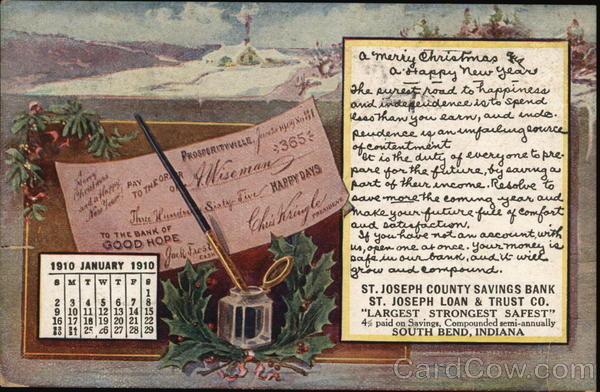 A Merry Christmas and
A Happy New Year
The surest road to happiness
and independence is to spend
less than you earn, and inde-
pendence is an unfailing source
of contentment
It is the duty of everyone to pre-
pare for the future, by saving a
part of their income. Resolve to
save more the coming year and
make your future full of comfort
and satisfaction.
If you have not an account with
us, open one at once. Your money is
safe in our bank, and it will
grow and compound.
ST. JOSEPH COUNTY SAVINGS BANK
ST. JOSEPH LOAN & TRUST CO.
"LARGEST STRONGEST SAFEST"
4% paid on Savings, Compounded semi-annually
SOUTH BEND, INDIANA
A
Merry
Christmas
and a Happy
New Year
PROSPERITYVILLE,
PAY TO THE ORDER OF A. Wiseman $365
Three Hundred Sixty Five HAPPY DAYS
TO THE BANK OF
GOOD HOPE
Chris Kringle
PRESIDENT
Jack Frost
CASH.
1910 JANUARY 1910
S M T W T F S
1
2 3 4 5 6 7 8
9 10 11 12 13 14 15
16 17 18 19 20 21 22
23/30 24/31 25 26 27 28 29
CardCow.com